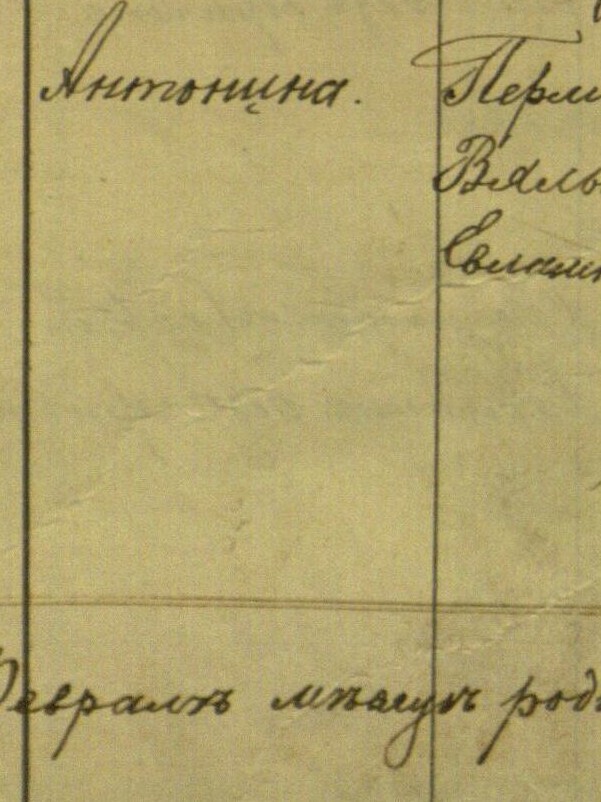 Антонина. Перм
Вяль
Евламп
Февралѣ мѣсяцѣ род